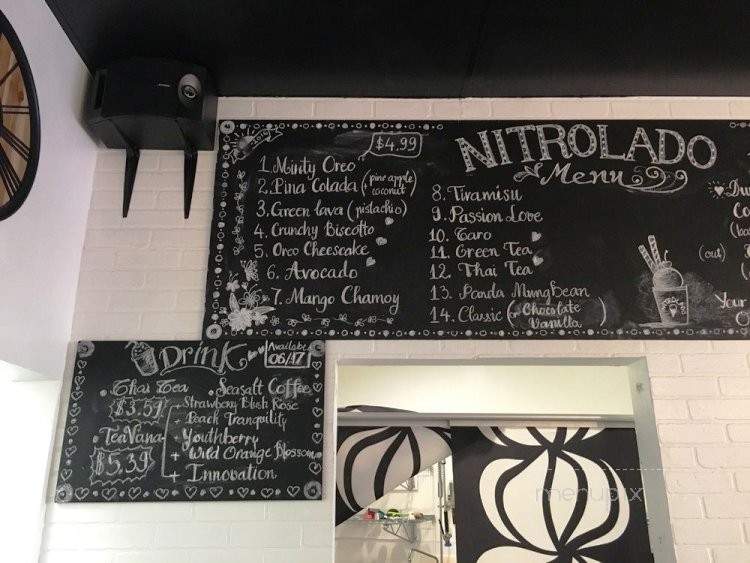 2016
$4.99
NITROLADO
Menu
1. Minty Oreo
2. Pina Colada (pine apple coconut)
3. Green lava (pistachio)
4. Crunchy Biscotto
5. Oreo Cheesecake
6. Avocado
7. Mango Chamoy
8. Tiramisu
9. Passion Love
10. Taro
11. Green Tea
12. Thai Tea
13. Panda MungBean
14. Classic (or Chocolate Vanilla)
(out)
Your
Drink
Available 06/17
Thai Tea
Seasalt Coffee
$3.59
+ Strawberry Blush Rose
+ Peach Tranquility
TeaVana
Youthberry
$5.39
+ Wild Orange Blossom
+ Innovation
menupix